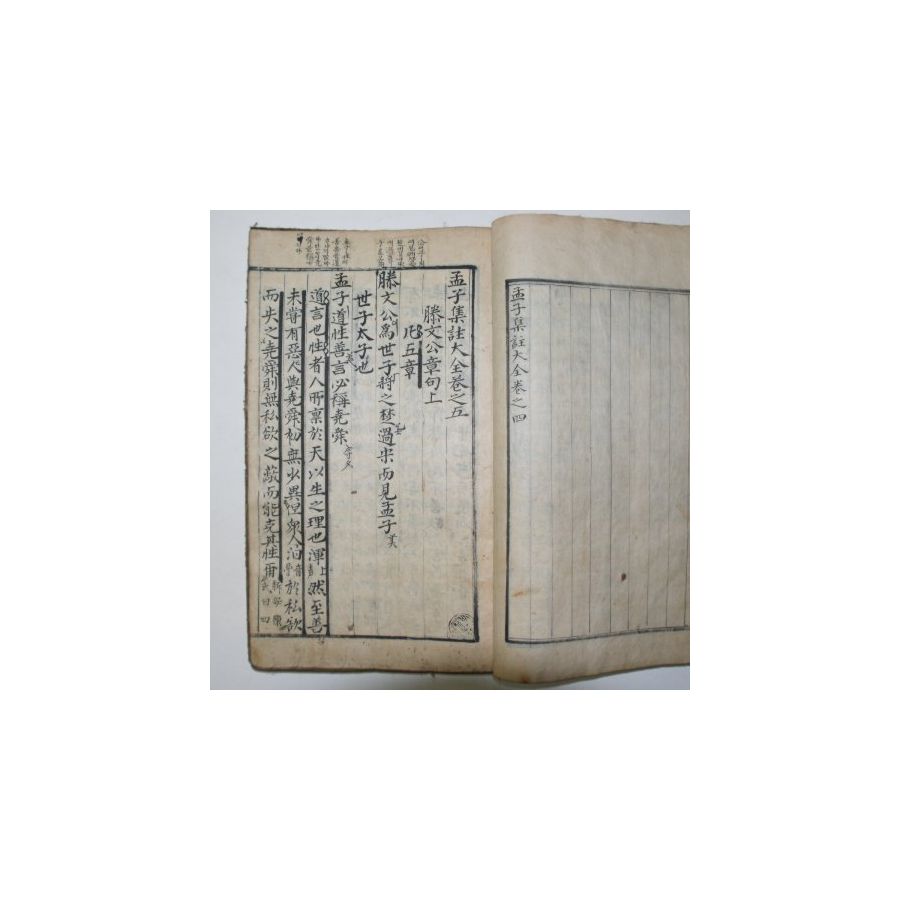 孟子集註大全卷之四
孟子集註大全卷之五
滕文公章句上
凡五章
滕文公爲世子將之楚過宋而見孟子
世子太子也
孟子道性善言必稱堯舜
道言也性者人所禀於天以生之理也渾然至善
未甞有惡人與堯舜初無少異但衆人汩於私欲
而失之堯舜則無私欲之蔽而能充其性爾